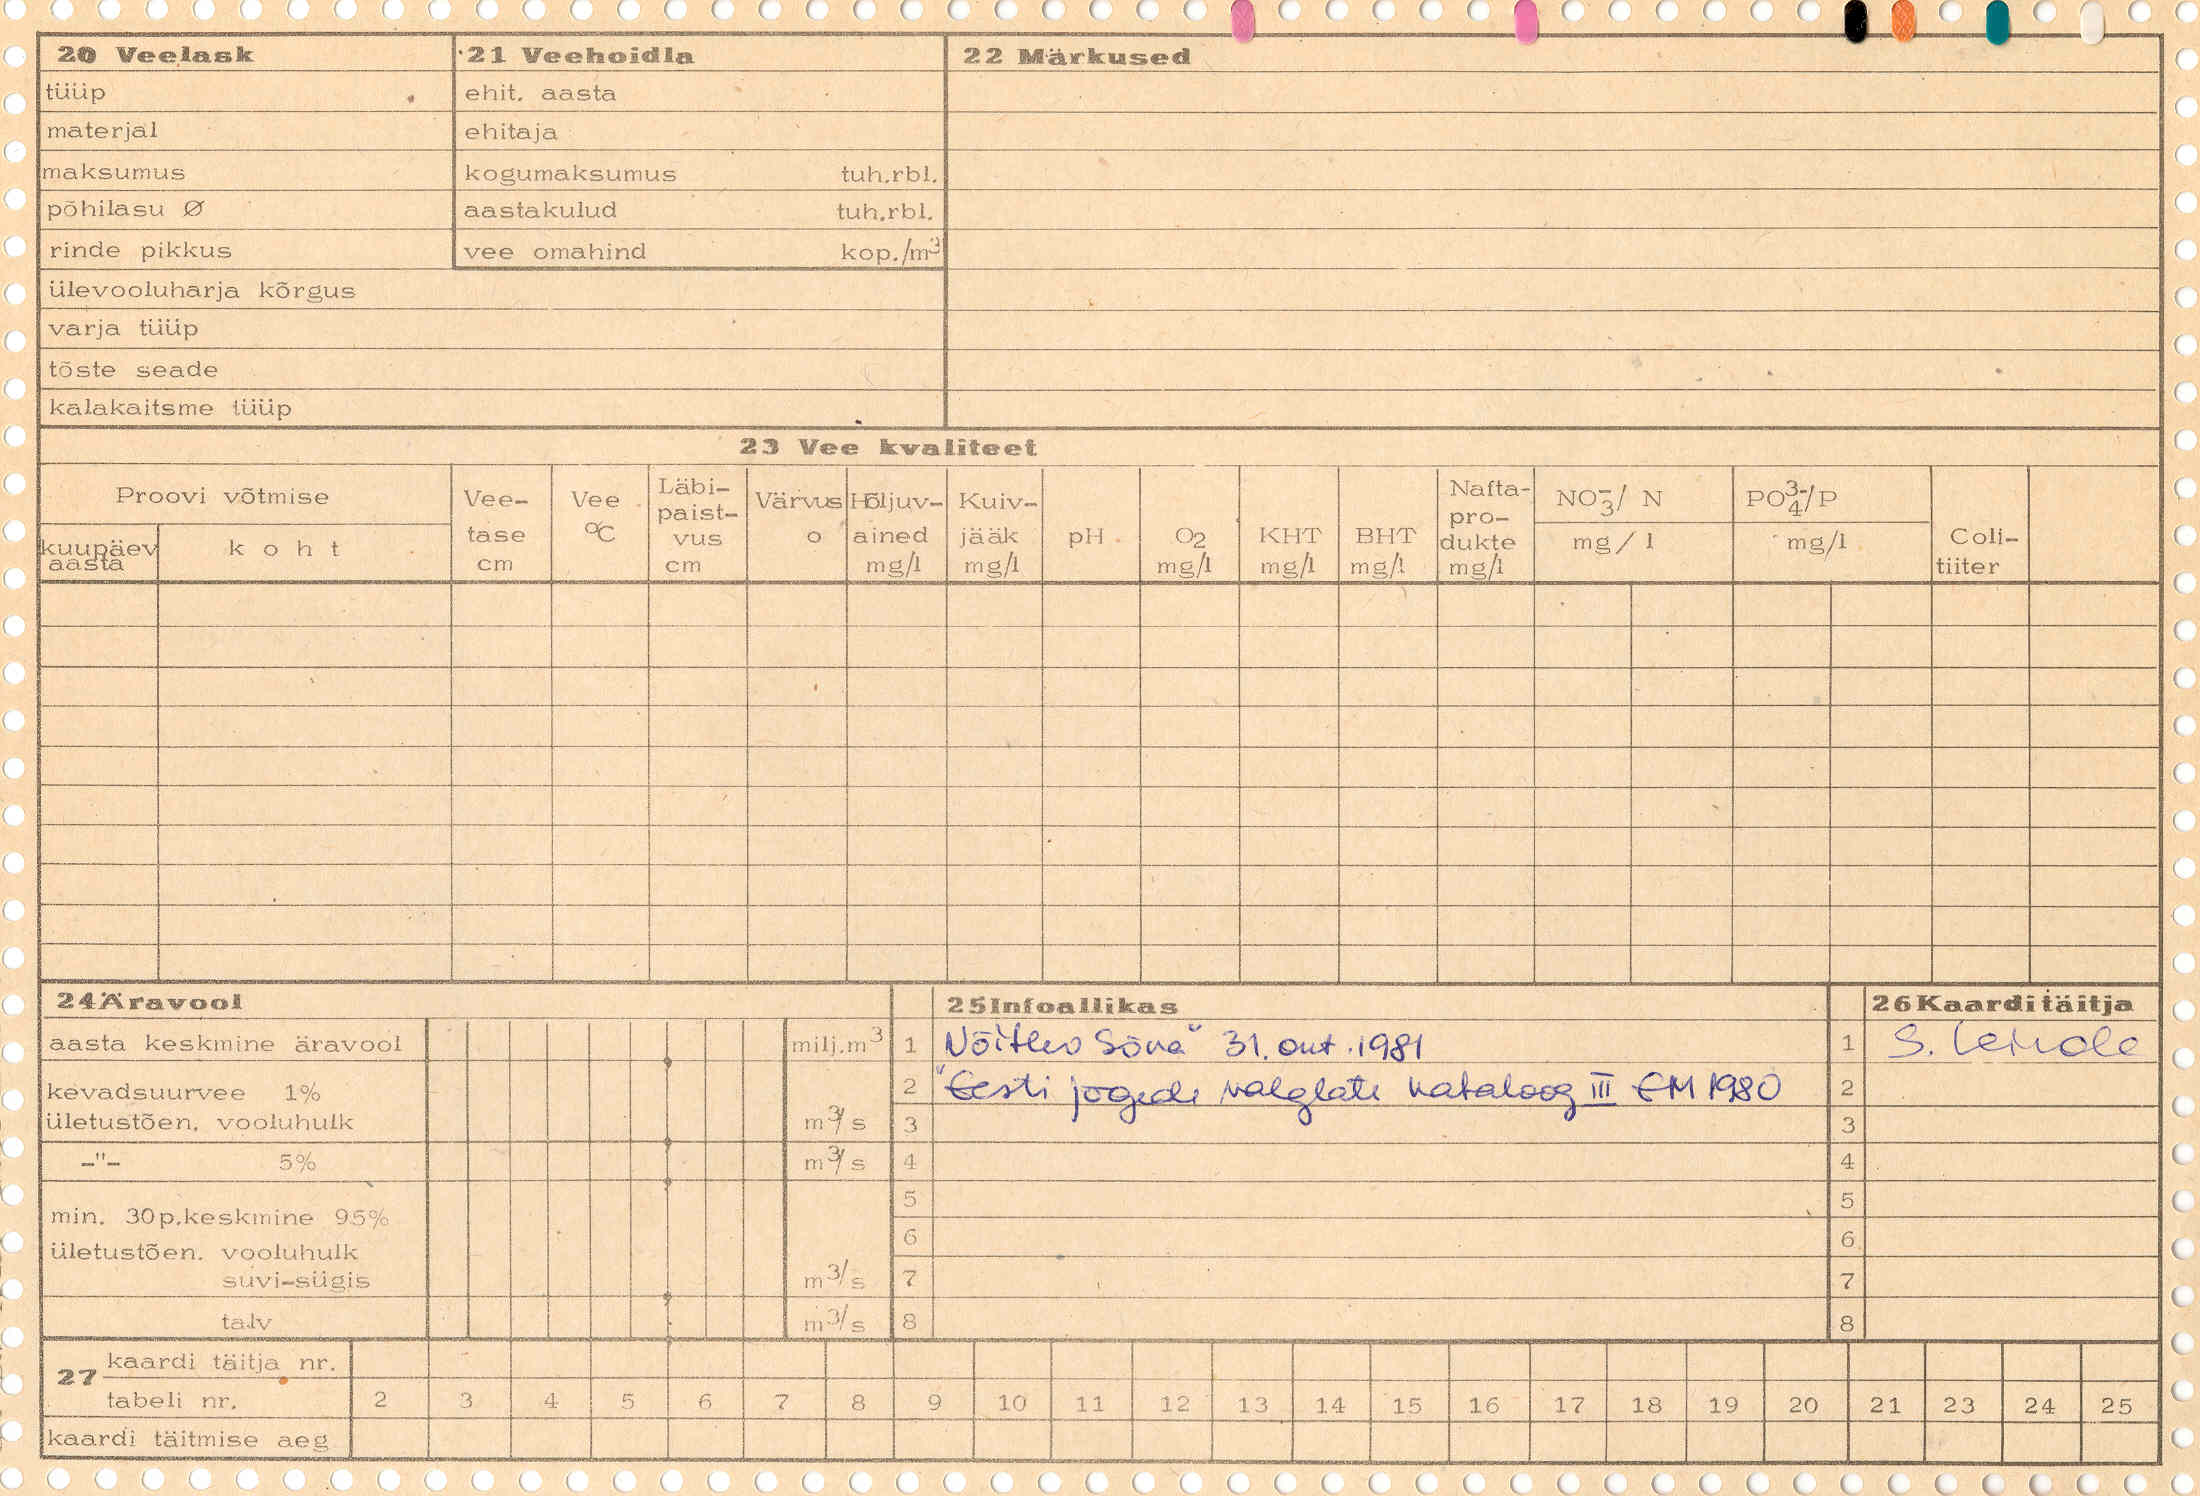 20 Veelask
tüüp
materjal
maksumus
põhilasu Ø
rinde pikkus
ülevooluharja kõrgus
varja tüüp
tõste seade
kalakaitsme tüüp
21 Veehoidla
ehit. aasta
ehitaja
kogumaksumus tuh.rbl.
aastakulud tuh.rbl.
vee omahind kop./m³
22 Märkused
23 Vee kvaliteet
Proovi võtmise
kuupäev aasta
koht
Vee-
tase
cm
Vee
°C
Läbi-
paist-
vus
cm
Värvus
o
Hõljuv-
ained
mg/l
Kuiv-
jääk
mg/l
pH
O2
mg/l
KHT
mg/l
BHT
mg/l
Nafta-
pro-
dukte
mg/l
NO₃⁻/ N
mg/l
PO₄³⁻/P
mg/l
Coli-
tiiter
24 Äravool
aasta keskmine äravool milj.m³
kevadsuurvee 1%
ületustõen. vooluhulk m³/s
-"- 5% m³/s
min. 30p.keskmine 95%
ületustõen. vooluhulk
suvi-sügis m³/s
talv m³/s
25 Infoallikas
1 Võitlev Sõna" 31. okt. 1981
2 "Eesti jõgede valglate kataloog III EM 1980
3
4
5
6
7
8
26 Kaarditäitja
1 S.
2
3
4
5
6
7
8
27 kaardi täitja nr.
tabeli nr. 2 3 4 5 6 7 8 9 10 11 12 13 14 15 16 17 18 19 20 21 23 24 25
kaardi täitmise aeg